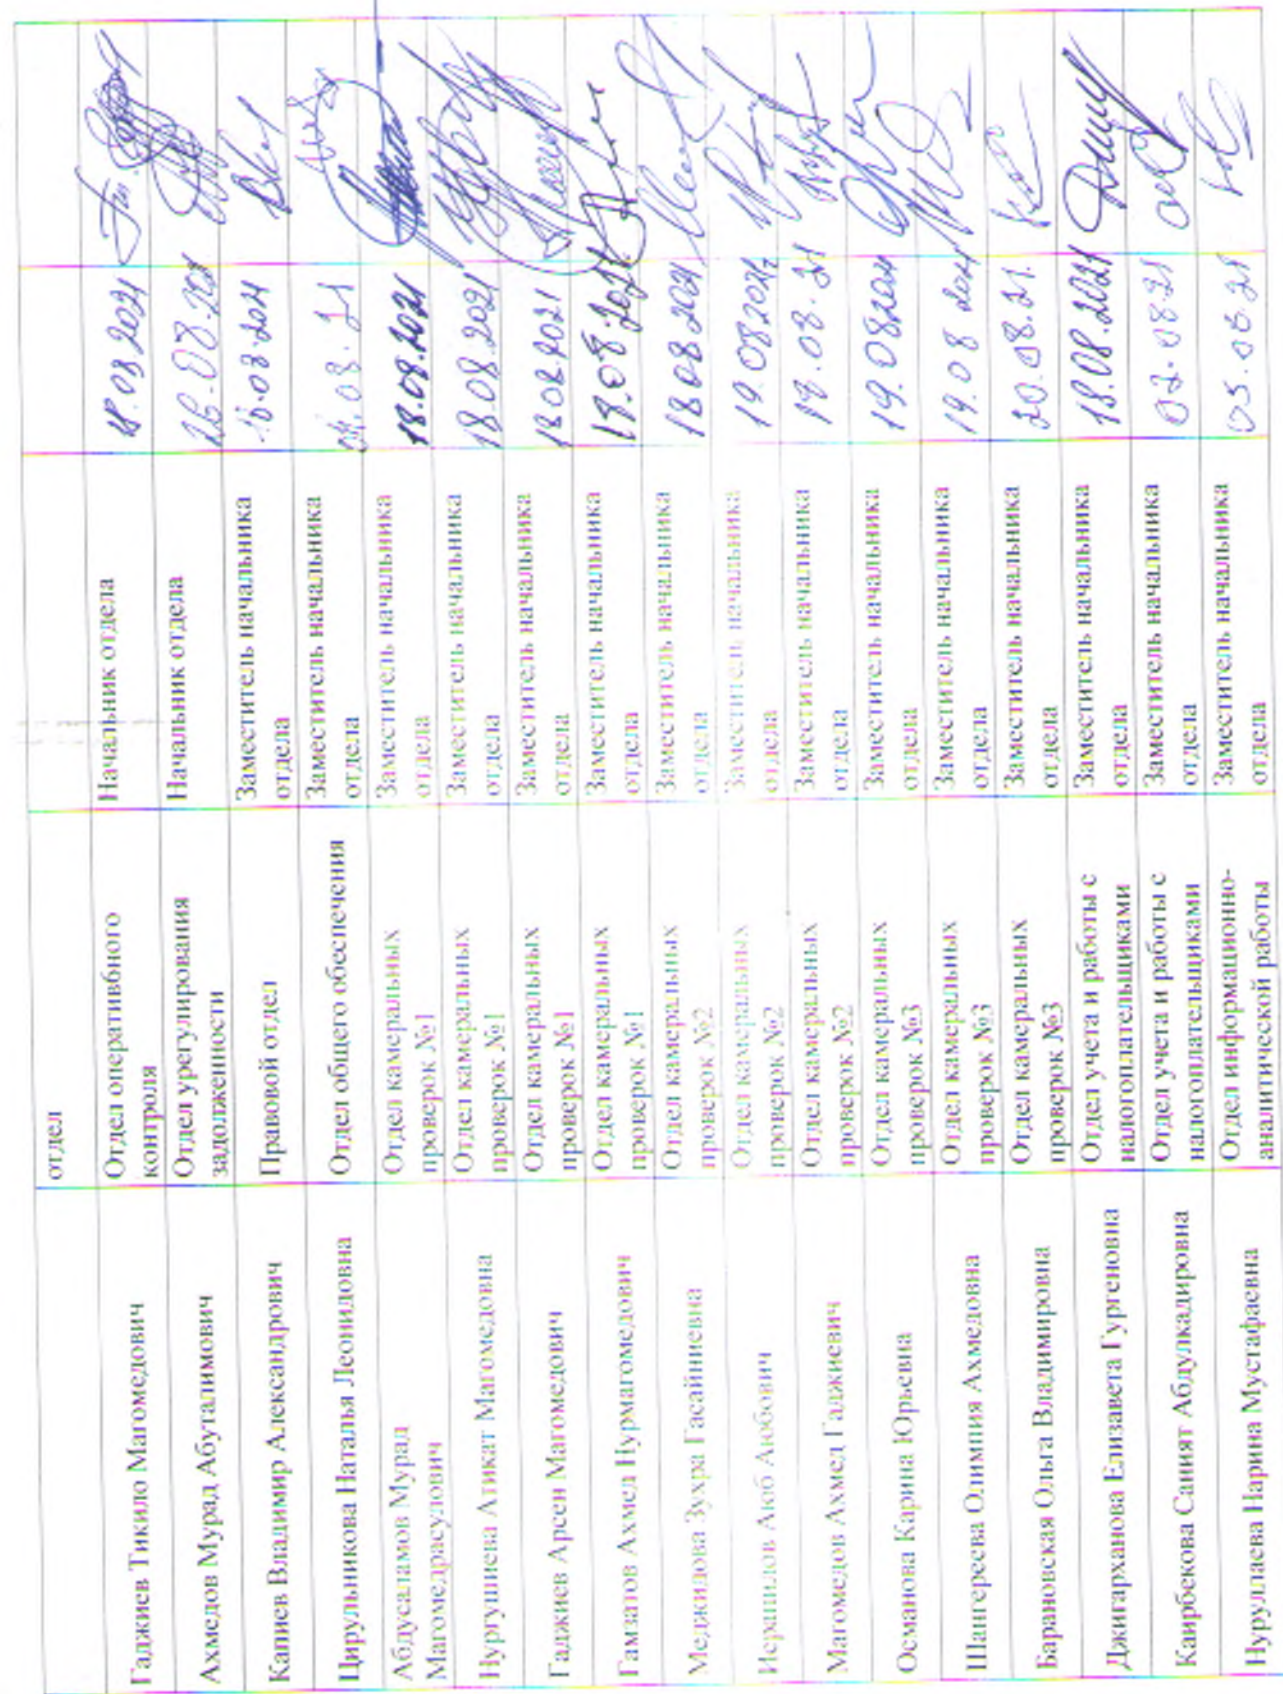 отдел
Гаджиев Тикило Магомедович
Отдел оперативбного
контроля
Начальник отдела
18.08.2021
Ахмедов Мурад Абуталимович
Отдел урегулирования
задолженности
Начальник отдела
Капиев Владимир Александрович
Правовой отдел
Заместитель начальника
отдела
Цирульникова Наталья Леонидовна
Отдел общего обеспечения
Заместитель начальника
отдела
Абдусаламов Мурад
Магомедрасулович
Отдел камеральных
проверок №1
Заместитель начальника
отдела
18.08.2021
Нургушиева Атикат Магомедовна
Отдел камеральных
проверок №1
Заместитель начальника
отдела
18.08.2021
Гаджиев Арсен Магомедович
Отдел камеральных
проверок №1
Заместитель начальника
отдела
18.08.2021
Гамзатов Ахмед Нурмагомедович
Отдел камеральных
проверок №1
Заместитель начальника
отдела
18.08.2021
Меджидова Зухра Гасайниевна
Отдел камеральных
проверок №2
Заместитель начальника
отдела
18.08.2021
Исрапилов Аюб Аюбович
Отдел камеральных
проверок №2
Заместитель начальника
отдела
19.08.2021
Магомедов Ахмед Гаджиевич
Отдел камеральных
проверок №2
Заместитель начальника
отдела
Османова Карина Юрьевна
Отдел камеральных
проверок №3
Заместитель начальника
отдела
19.08.2021
Шангереева Олимпия Ахмедовна
Отдел камеральных
проверок №3
Заместитель начальника
отдела
19.08.2021
Барановская Ольга Владимировна
Отдел камеральных
проверок №3
Заместитель начальника
отдела
20.08.21.
Джигарханова Елизавета Гургеновна
Отдел учета и работы с
налогоплательщиками
Заместитель начальника
отдела
18.08.2021
Каирбекова Саният Абдулкадировна
Отдел учета и работы с
налогоплательщиками
Заместитель начальника
отдела
Нуруллаева Нарина Мустафаевна
Отдел информационно-
аналитической работы
Заместитель начальника
отдела